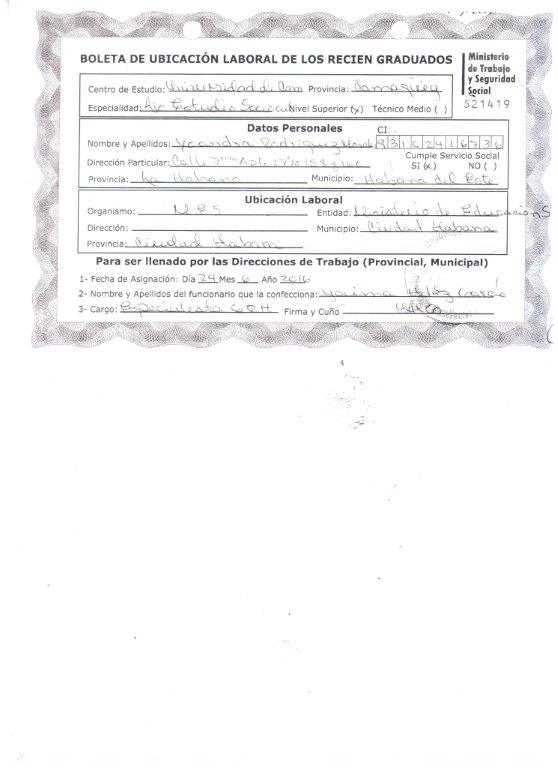 BOLETA DE UBICACIÓN LABORAL DE LOS RECIEN GRADUADOS
Ministerio
de Trabajo
y Seguridad
Social
521419
Centro de Estudio: Universidad de Cam Provincia: Camagüey
Especialidad: Estudio Nivel Superior (x) Técnico Medio ( )
Datos Personales
CI:
Nombre y Apellidos: Rodriguez
Cumple Servicio Social
Dirección Particular: Calle Apto SI (x) NO ( )
Provincia: La Habana Municipio: Habana del Este
Ubicación Laboral
Organismo: MES Entidad: Ministerio de Educación S
Dirección: Municipio: Ciudad Habana
Provincia: Ciudad Habana
Para ser llenado por las Direcciones de Trabajo (Provincial, Municipal)
1- Fecha de Asignación: Día 29 Mes 6 Año 2016
2- Nombre y Apellidos del funcionario que la confecciona:
3- Cargo: Especialista GRH Firma y Cuño